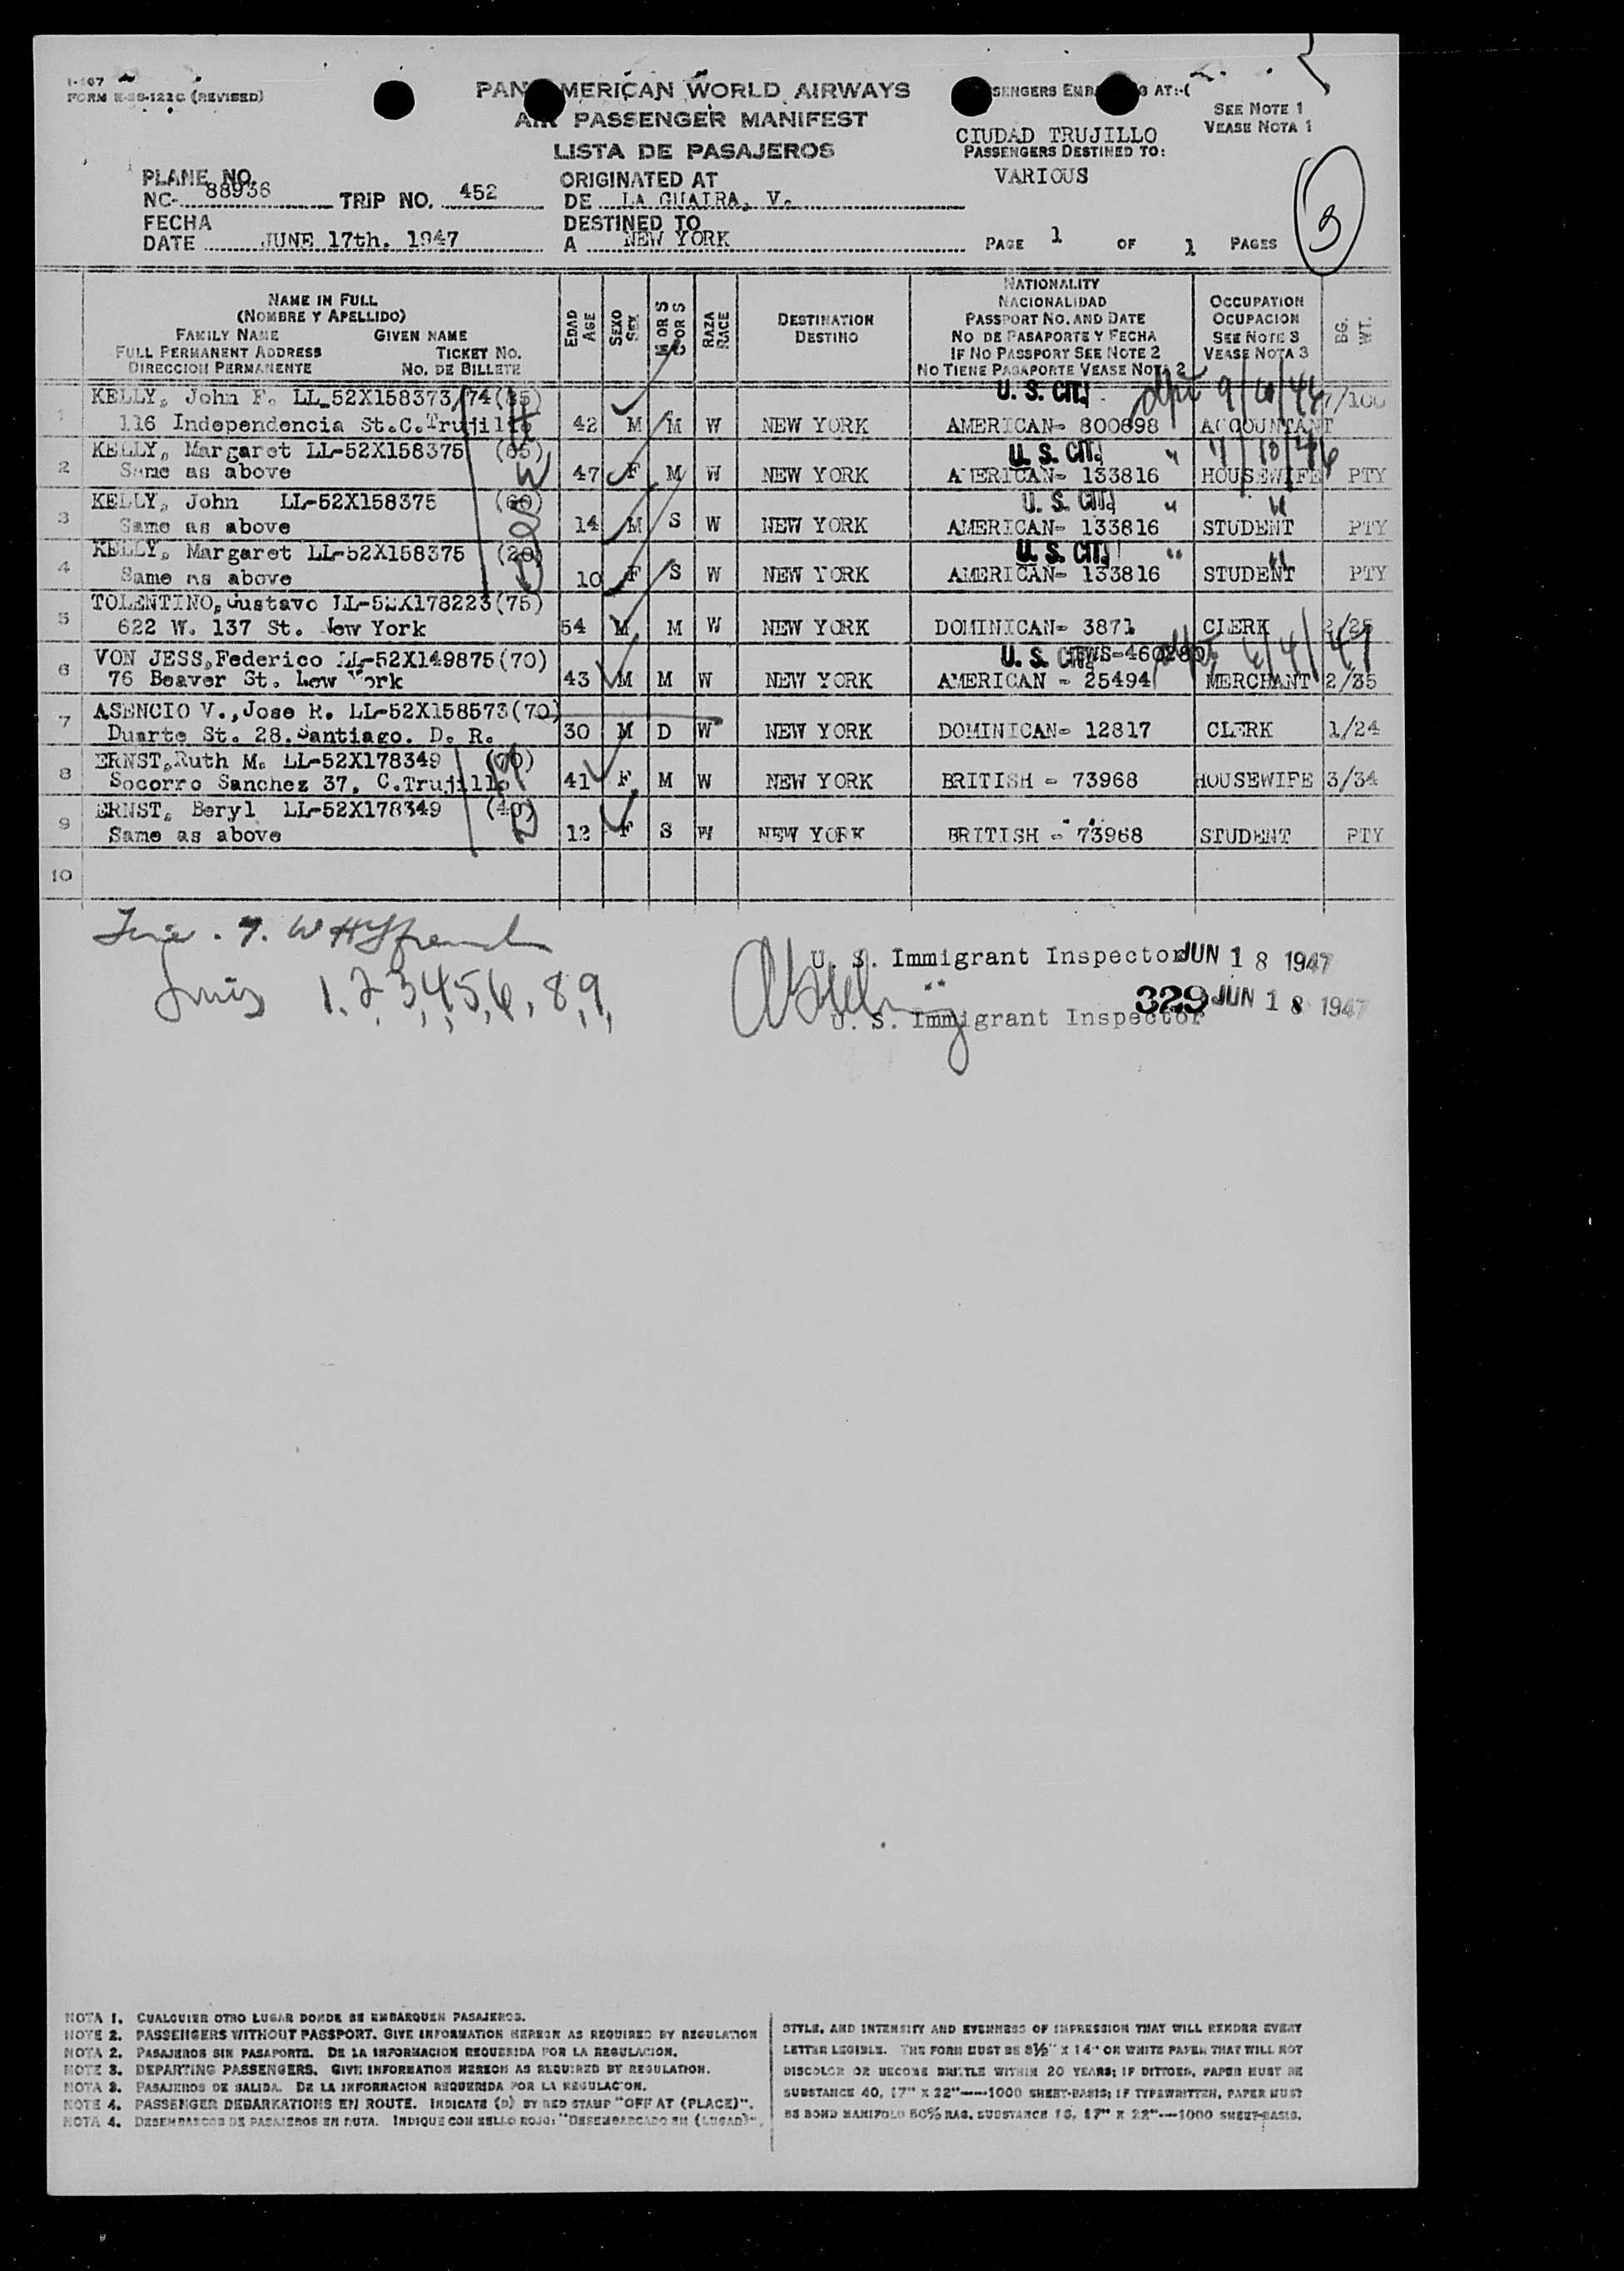 I-467
FORM E-SS-122C (REVISED)
PAN AMERICAN WORLD AIRWAYS
AIR PASSENGER MANIFEST
LISTA DE PASAJEROS
PASSENGERS EMBARKING AT:-(
SEE NOTE 1
VEASE NOTA 1
CIUDAD TRUJILLO
PASSENGERS DESTINED TO:
VARIOUS
3
PLANE NO.
NC- 88936 TRIP NO. 452
ORIGINATED AT
DE LA GUAIRA, V.
FECHA
DATE JUNE 17th. 1947
DESTINED TO
A NEW YORK
PAGE 1 OF 1 PAGES
NAME IN FULL
(NOMBRE Y APELLIDO)
FAMILY NAME GIVEN NAME
FULL PERMANENT ADDRESS TICKET NO.
DIRECCION PERMANENTE NO. DE BILLETE
EDAD AGE
SEXO SEX
M OR S
C OR S
RAZA RACE
DESTINATION
DESTINO
NATIONALITY
NACIONALIDAD
PASSPORT NO. AND DATE
NO DE PASAPORTE Y FECHA
IF NO PASSPORT SEE NOTE 2
NO TIENE PASAPORTE VEASE NOTA 2
OCCUPATION
OCUPACION
SEE NOTE 3
VEASE NOTA 3
BG. WT.
1 KELLY, John F. LL-52X158373/74(85) U. S. CIT. 9/10/46 7/100
116 Independencia St.C.Trujillo 42 M M W NEW YORK AMERICAN- 800698 ACCOUNTANT
2 KELLY, Margaret LL-52X158375 (65) U. S. CIT. " 9/10/46
Same as above 47 F M W NEW YORK AMERICAN- 133816 HOUSEWIFE PTY
3 KELLY, John LL-52X158375 (60) U. S. CIT. " "
Same as above 14 M S W NEW YORK AMERICAN- 133816 STUDENT PTY
4 KELLY, Margaret LL-52X158375 (20) U. S. CIT. " "
Same as above 10 F S W NEW YORK AMERICAN- 133816 STUDENT PTY
5 TOLENTINO, Gustavo LL-52X178223(75)
622 W. 137 St. New York 54 M M W NEW YORK DOMINICAN- 3871 CLERK 2/25
6 VON JESS, Federico LL-52X149875(70) U. S. CIT. 6/4/47
76 Beaver St. Lew York 43 M M W NEW YORK AMERICAN - 25494 MERCHANT 2/35
7 ASENCIO V.,Jose R. LL-52X158573(70)
Duarte St. 28.Santiago. D. R. 30 M D W NEW YORK DOMINICAN- 12817 CLERK 1/24
8 ERNST, Ruth M. LL-52X178349 (70)
Socorro Sanchez 37, C.Trujillo 41 F M W NEW YORK BRITISH - 73968 HOUSEWIFE 3/34
9 ERNST, Beryl LL-52X178349 (40)
Same as above 12 F S W NEW YORK BRITISH - 73968 STUDENT PTY
10
U. S. Immigrant Inspector JUN 18 1947
1, 2, 3, 4, 5, 6, 8, 9,
329 JUN 18 1947
U. S. Immigrant Inspector
NOTA 1. CUALQUIER OTRO LUGAR DONDE SE EMBARQUEN PASAJEROS.
NOTE 2. PASSENGERS WITHOUT PASSPORT. GIVE INFORMATION HEREON AS REQUIRED BY REGULATION
NOTA 2. PASAJEROS SIN PASAPORTE. DE LA INFORMACION REQUERIDA POR LA REGULACION.
NOTE 3. DEPARTING PASSENGERS. GIVE INFORMATION HEREON AS REQUIRED BY REGULATION.
NOTA 3. PASAJEROS DE SALIDA. DE LA INFORMACION REQUERIDA POR LA REGULACION.
NOTE 4. PASSENGER DEBARKATIONS EN ROUTE. INDICATE (D) BY RED STAMP "OFF AT (PLACE)".
NOTA 4. DESEMBARCOS DE PASAJEROS EN RUTA. INDIQUE CON SELLO ROJO: "DESEMBARCADO EN (LUGAR)".
STYLE, AND INTENSITY AND EVENNESS OF IMPRESSION THAT WILL RENDER EVERY
LETTER LEGIBLE. THE FORM MUST BE 8½" X 14" ON WHITE PAPER THAT WILL NOT
DISCOLOR OR BECOME BRITTLE WITHIN 20 YEARS; IF DITTOED, PAPER MUST BE
SUBSTANCE 40, 17" X 22"----1000 SHEET-BASIS; IF TYPEWRITTEN, PAPER MUST
BE BOND MANIFOLD 50% RAG, SUBSTANCE 16, 17" X 22"---1000 SHEET-BASIS.